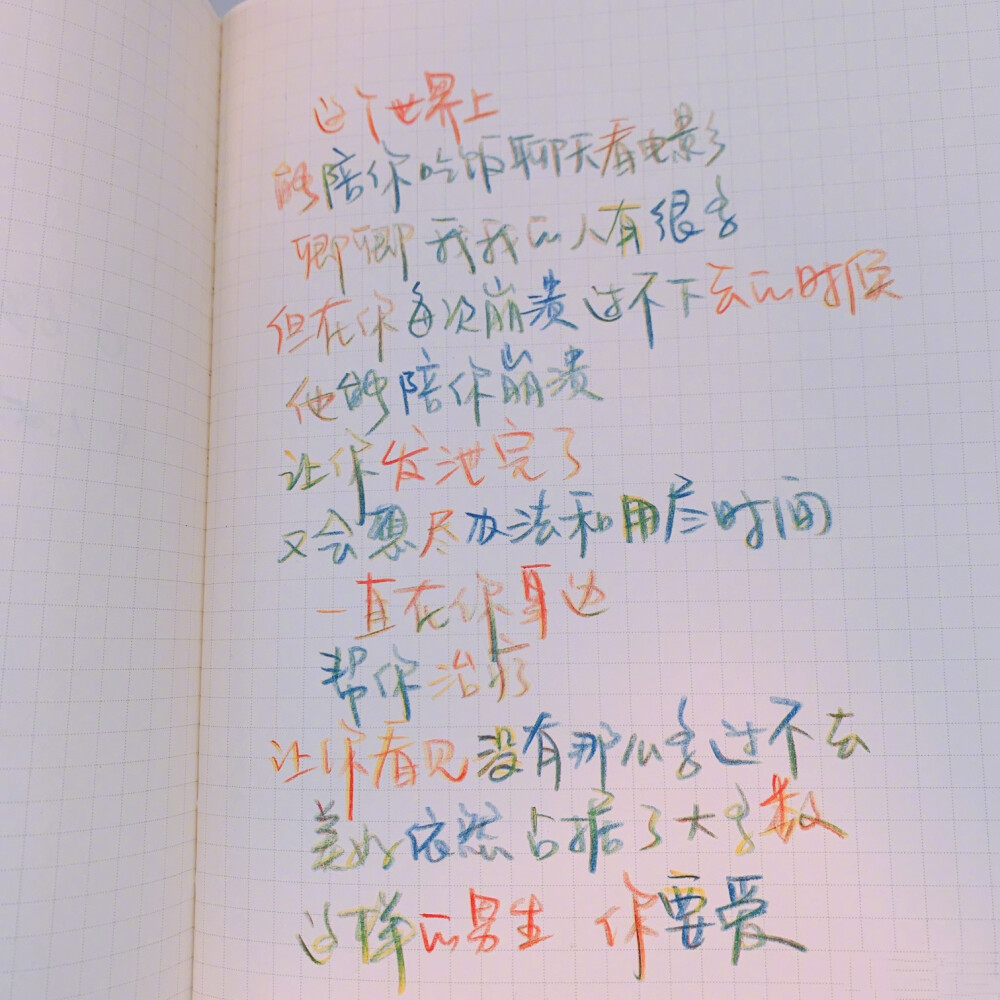 这个世界上
能陪你吃饭聊天看电影
卿卿我我的人有很多
但在你每次崩溃过不下去的时候
他能陪你崩溃
让你发泄完了
又会想尽办法和用尽时间
一直在你身边
帮你治疗
让你看见没有那么多过不去
美好依然占据了大多数
这样的男生 你要爱